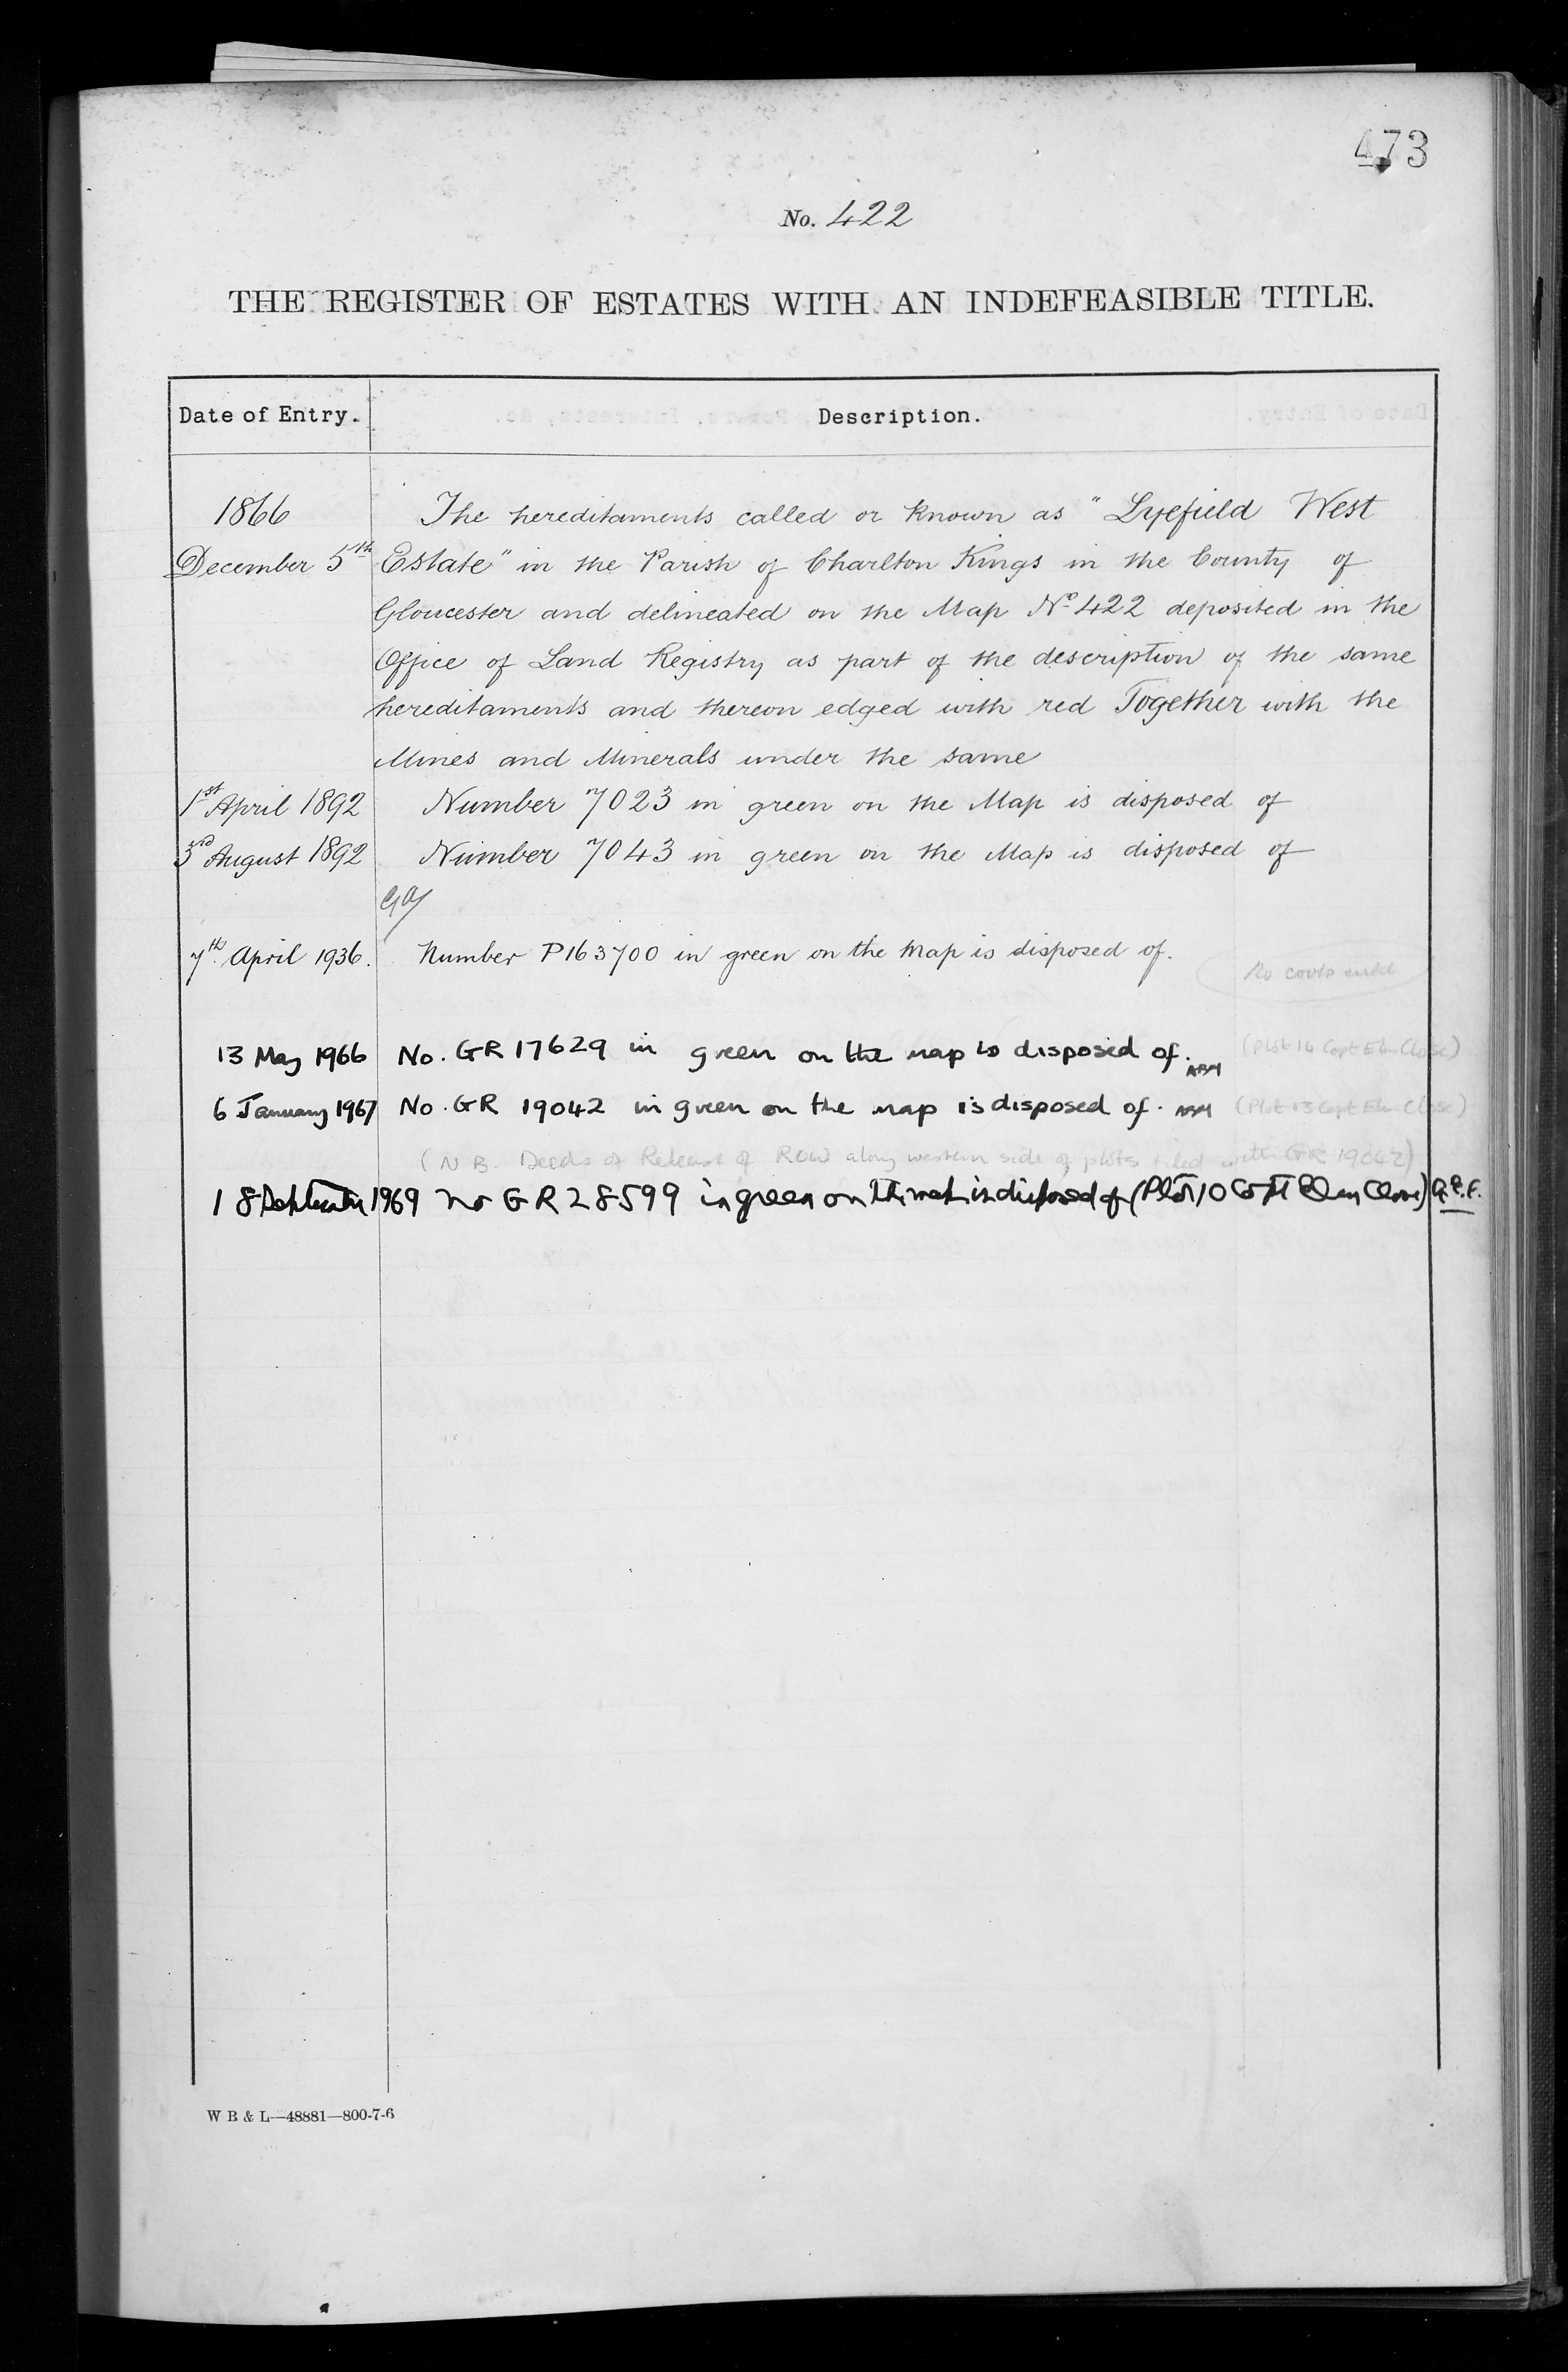 473
No. 422
THE REGISTER OF ESTATES WITH AN INDEFEASIBLE TITLE.
Date of Entry. Description.
1866 The hereditaments called or known as "Lyefield West
December 5th Estate" in the Parish of Charlton Kings in the County of
Gloucester and delineated on the Map No. 422 deposited in the
Office of Land Registry as part of the description of the same
hereditaments and thereon edged with red Together with the
Mines and Minerals under the same
1st April 1892 Number 7023 in green on the Map is disposed of
3rd August 1892 Number 7043 in green on the Map is disposed of
7th April 1936. Number P163700 in green on the Map is disposed of.
No covts
13 May 1966 No. GR 17629 in green on the map is disposed of. ABM (Plot 14 Copt Elm Close)
6 January 1967 No. GR 19042 in green on the map is disposed of. ABM (Plot 13 Copt Elm Close)
(N B. Deeds of Release of ROW along western side of plots filed with GR 19042)
18 September 1969 No GR 28599 in green on the map is disposed of (Plot 10 Copt Elm Close)
W B & L—48881—800-7-6